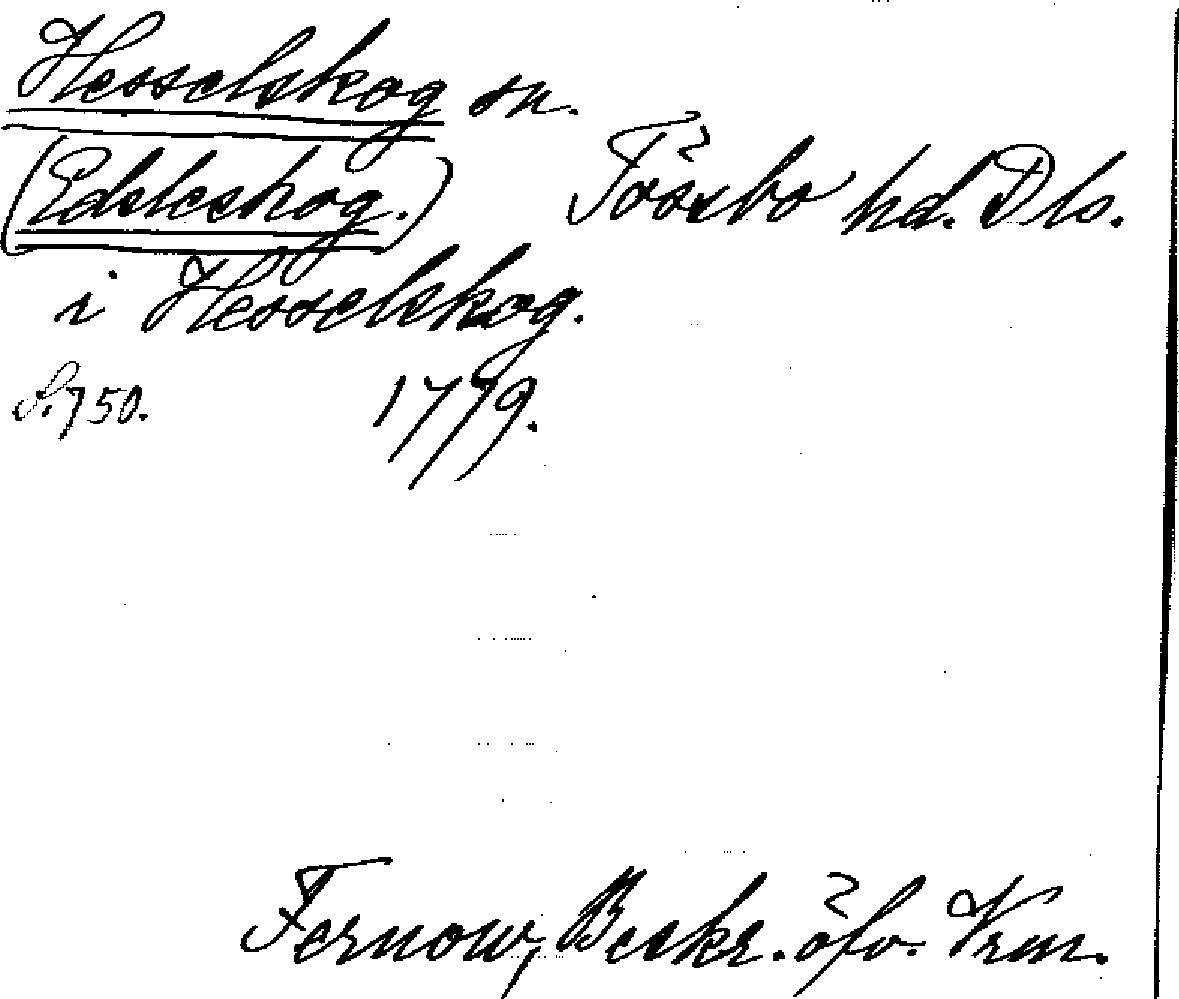 Hesselskog sn.
(Edsleskog.) Tössbo hd. Dls.
i Hesselskog.
S. 750. 1779.
Fernow, Beskr. öfv. Vrm.